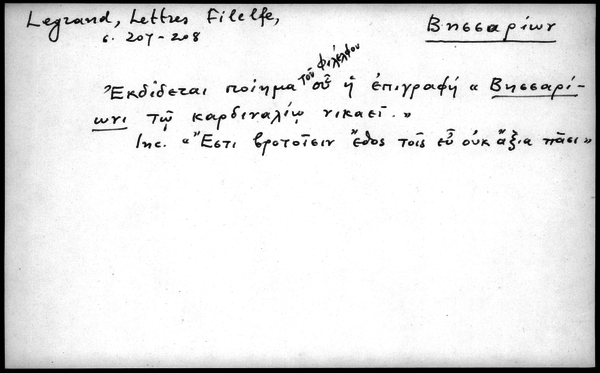 Legrand, Lettres Filelfe,
σ. 207-208
Βησσαρίων
Ἐκδίδεται ποίημα τοῦ Φιλέλφου οὗ ἡ ἐπιγραφή « Βησσαρί-
ωνι τῷ καρδιναλίῳ νικαεῖ. »
Inc. « Ἔστι βροτοῖσιν ἔθος τοῖς εὖ οὐκ ἄξια πᾶσι »